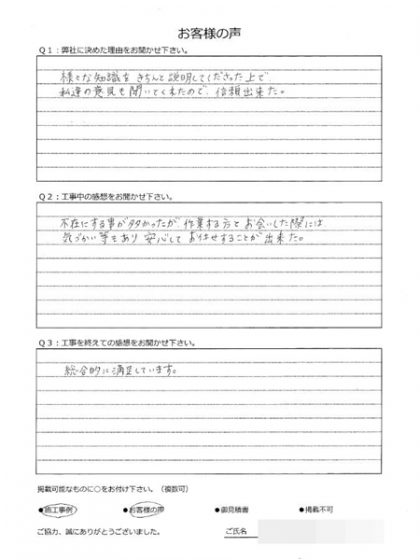 お客様の声
Q1：弊社に決めた理由をお聞かせ下さい。
様々な知識をきちんと説明してくださった上で
私達の意見も聞いてくれたので、信頼出来た。
Q2：工事中の感想をお聞かせ下さい。
不在にする事が多かったが、作業する方とお会いした際には
気づかい等もあり 安心してお任せすることが出来た。
Q3：工事を終えての感想をお聞かせ下さい。
総合的に満足しています。
掲載可能なものに○をお付け下さい。（複数可）
●施工事例 ●お客様の声 ●御見積書 ●掲載不可
ご協力、誠にありがとうございました。 ご氏名